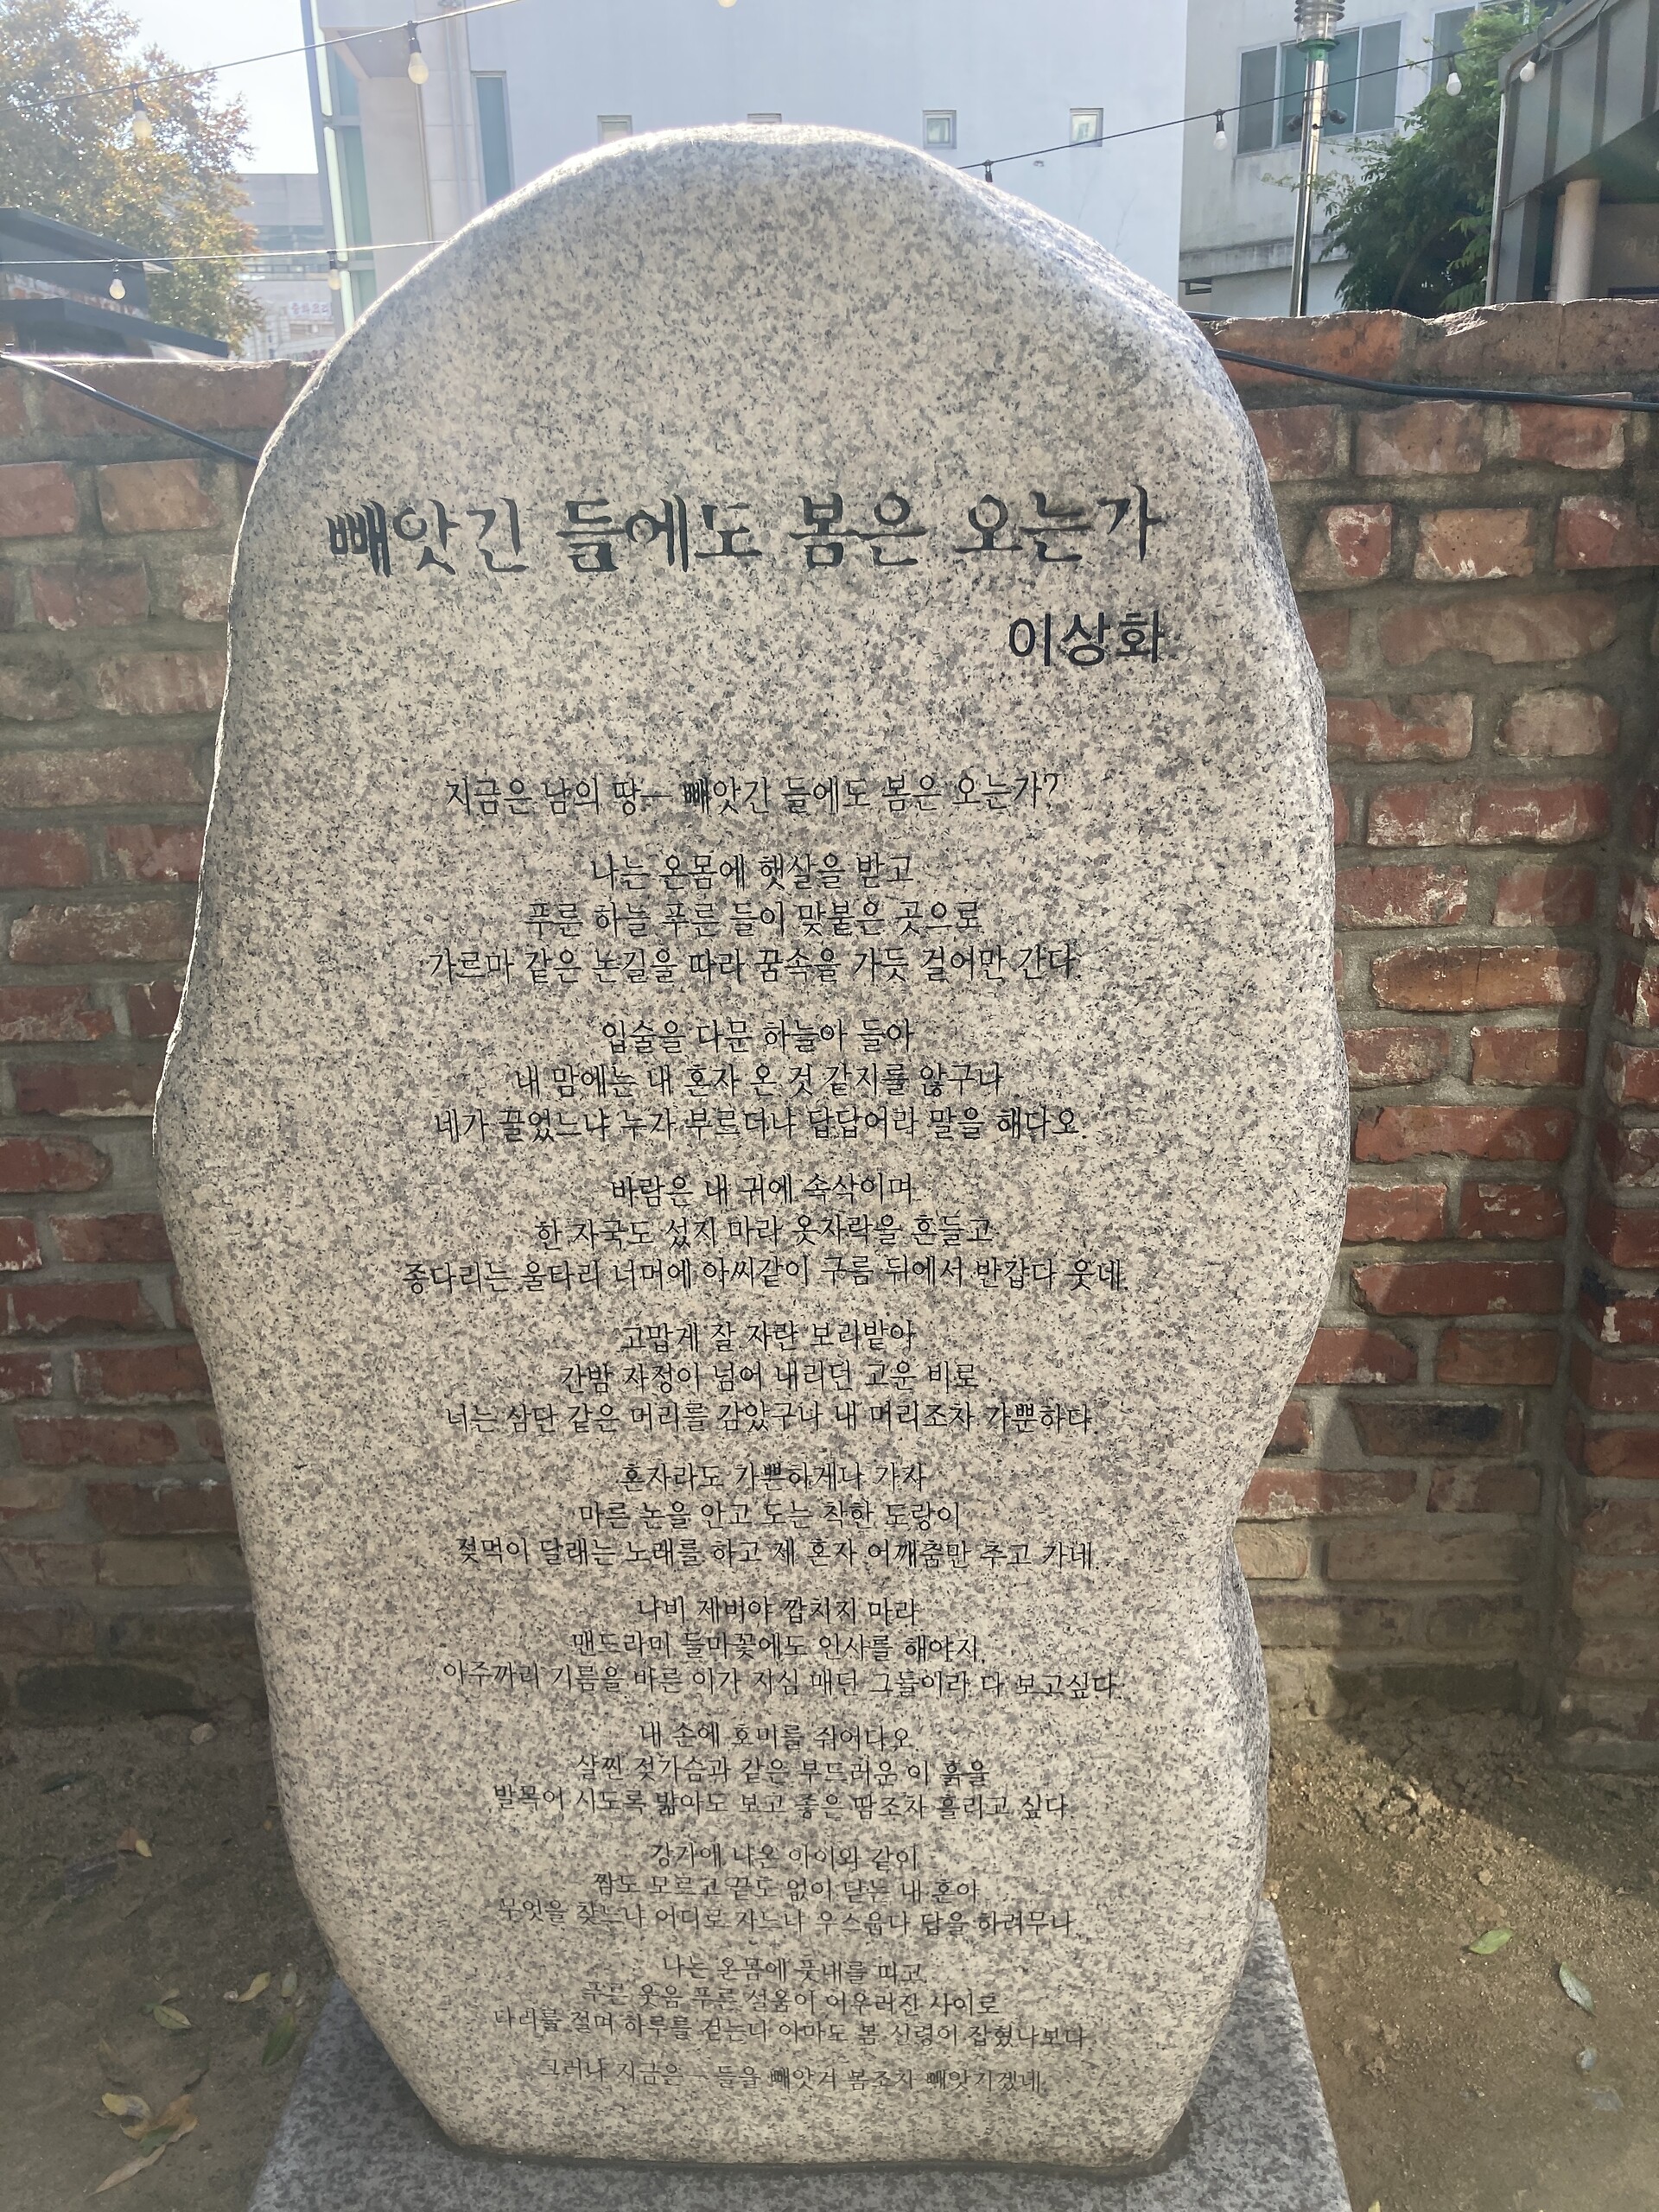 빼앗긴 들에도 봄은 오는가
이상화
지금은 남의 땅— 빼앗긴 들에도 봄은 오는가?
나는 온몸에 햇살을 받고
푸른 하늘 푸른 들이 맞붙은 곳으로
가르마 같은 논길을 따라 꿈속을 가듯 걸어만 간다.
입술을 다문 하늘아 들아
내 맘에는 내 혼자 온 것 같지를 않구나
네가 끌었느냐 누가 부르더냐 답답어라 말을 해다오.
바람은 내 귀에 속삭이며
한 자국도 섰지 마라 옷자락을 흔들고
종다리는 울타리 너머에 아씨같이 구름 뒤에서 반갑다 웃네.
고맙게 잘 자란 보리밭아
간밤 자정이 넘어 내리던 고운 비로
너는 삼단 같은 머리를 감았구나 내 머리조차 가뿐하다.
혼자라도 가쁜하게나 가자
마른 논을 안고 도는 착한 도랑이
젖먹이 달래는 노래를 하고 제 혼자 어깨춤만 추고 가네.
나비 제비야 깝치지 마라
맨드라미 들마꽃에도 인사를 해야지.
아주까리 기름을 바른 이가 지심 매던 그들이라 다 보고싶다.
내 손에 호미를 쥐어다오
살찐 젖가슴과 같은 부드러운 이 흙을
발목이 시도록 밟아도 보고 좋은 땀조차 흘리고 싶다.
강가에 나온 아이와 같이
짬도 모르고 끝도 없이 닫는 내 혼아
무엇을 찾느냐 어디로 가느냐 우스웁다 답을 하려무나.
나는 온몸에 풋내를 띠고
푸른 웃음 푸른 설움이 어우러진 사이로
다리를 절며 하루를 걷는다 아마도 봄 신령이 잡혔나보다.
그러나 지금은 — 들을 빼앗겨 봄조차 빼앗기겠네.